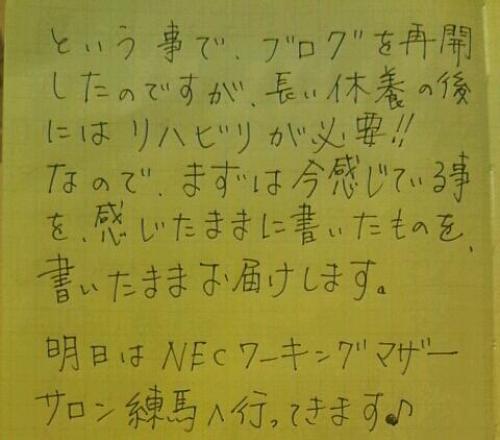 という事で、ブログを再開
したのですが、長い休養の後
にはリハビリが必要!!
なので、まずは今感じている事
を、感じたままに書いたものを、
書いたままお届けします。
明日はNECワーキングマザー
サロン練馬へ行ってきます♪